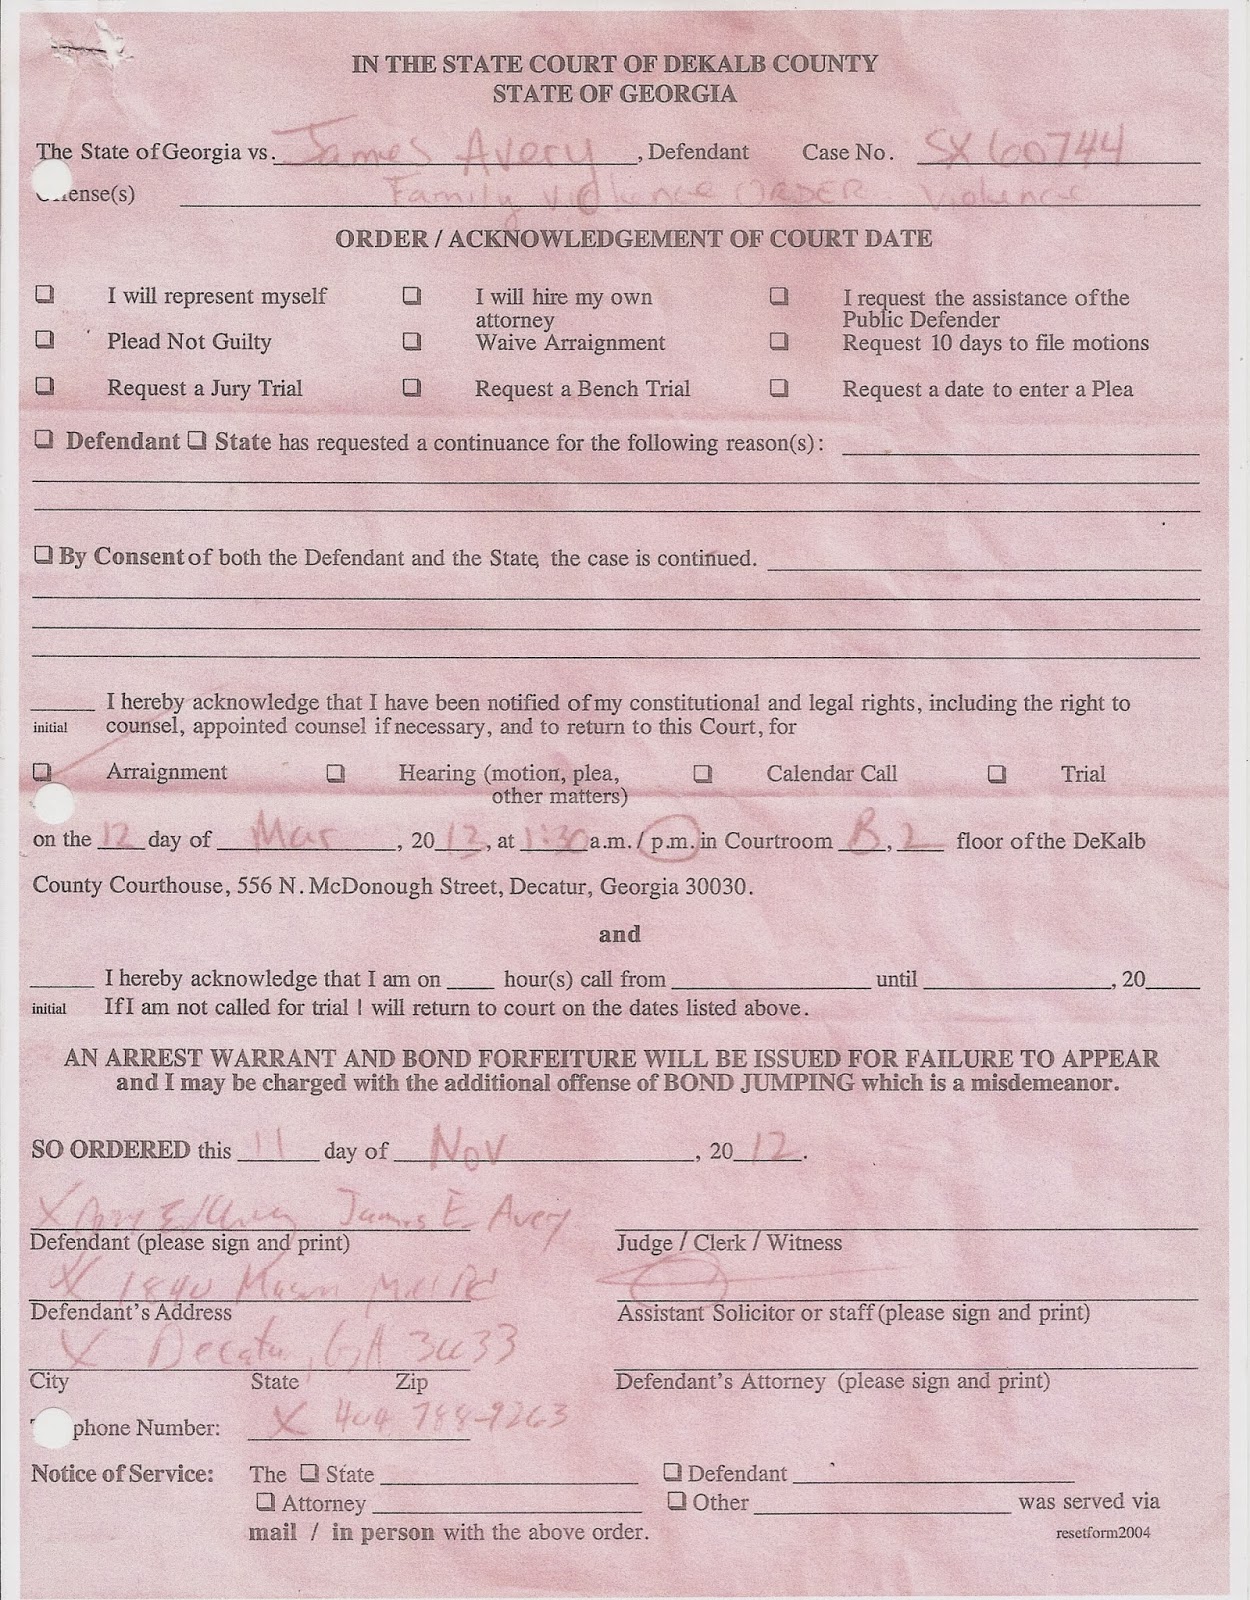 IN THE STATE COURT OF DEKALB COUNTY
STATE OF GEORGIA
The State of Georgia vs. James Avery, Defendant Case No. SX 60744
ense(s) Family Violence ORDER Violence
ORDER / ACKNOWLEDGEMENT OF COURT DATE
❏ I will represent myself ❏ I will hire my own attorney ❏ I request the assistance of the Public Defender
❏ Plead Not Guilty ❏ Waive Arraignment ❏ Request 10 days to file motions
❏ Request a Jury Trial ❏ Request a Bench Trial ❏ Request a date to enter a Plea
❏ Defendant ❏ State has requested a continuance for the following reason(s):
❏ By Consent of both the Defendant and the State, the case is continued.
I hereby acknowledge that I have been notified of my constitutional and legal rights, including the right to
initial counsel, appointed counsel if necessary, and to return to this Court, for
❏ Arraignment ❏ Hearing (motion, plea, other matters) ❏ Calendar Call ❏ Trial
on the 12 day of Mar, 2013, at 1:30 a.m. / p.m. in Courtroom B, 2 floor of the DeKalb
County Courthouse, 556 N. McDonough Street, Decatur, Georgia 30030.
and
I hereby acknowledge that I am on ____ hour(s) call from ____ until ____, 20____
initial If I am not called for trial I will return to court on the dates listed above.
AN ARREST WARRANT AND BOND FORFEITURE WILL BE ISSUED FOR FAILURE TO APPEAR
and I may be charged with the additional offense of BOND JUMPING which is a misdemeanor.
SO ORDERED this 11 day of Nov, 2012.
X James E Avery
Defendant (please sign and print) Judge / Clerk / Witness
X 1840 Mason Mill Rd
Defendant's Address Assistant Solicitor or staff (please sign and print)
X Decatur, GA 30033
City State Zip Defendant's Attorney (please sign and print)
phone Number: X 404 788-9263
Notice of Service: The ❏ State ❏ Defendant
❏ Attorney ❏ Other was served via
mail / in person with the above order. resetform2004